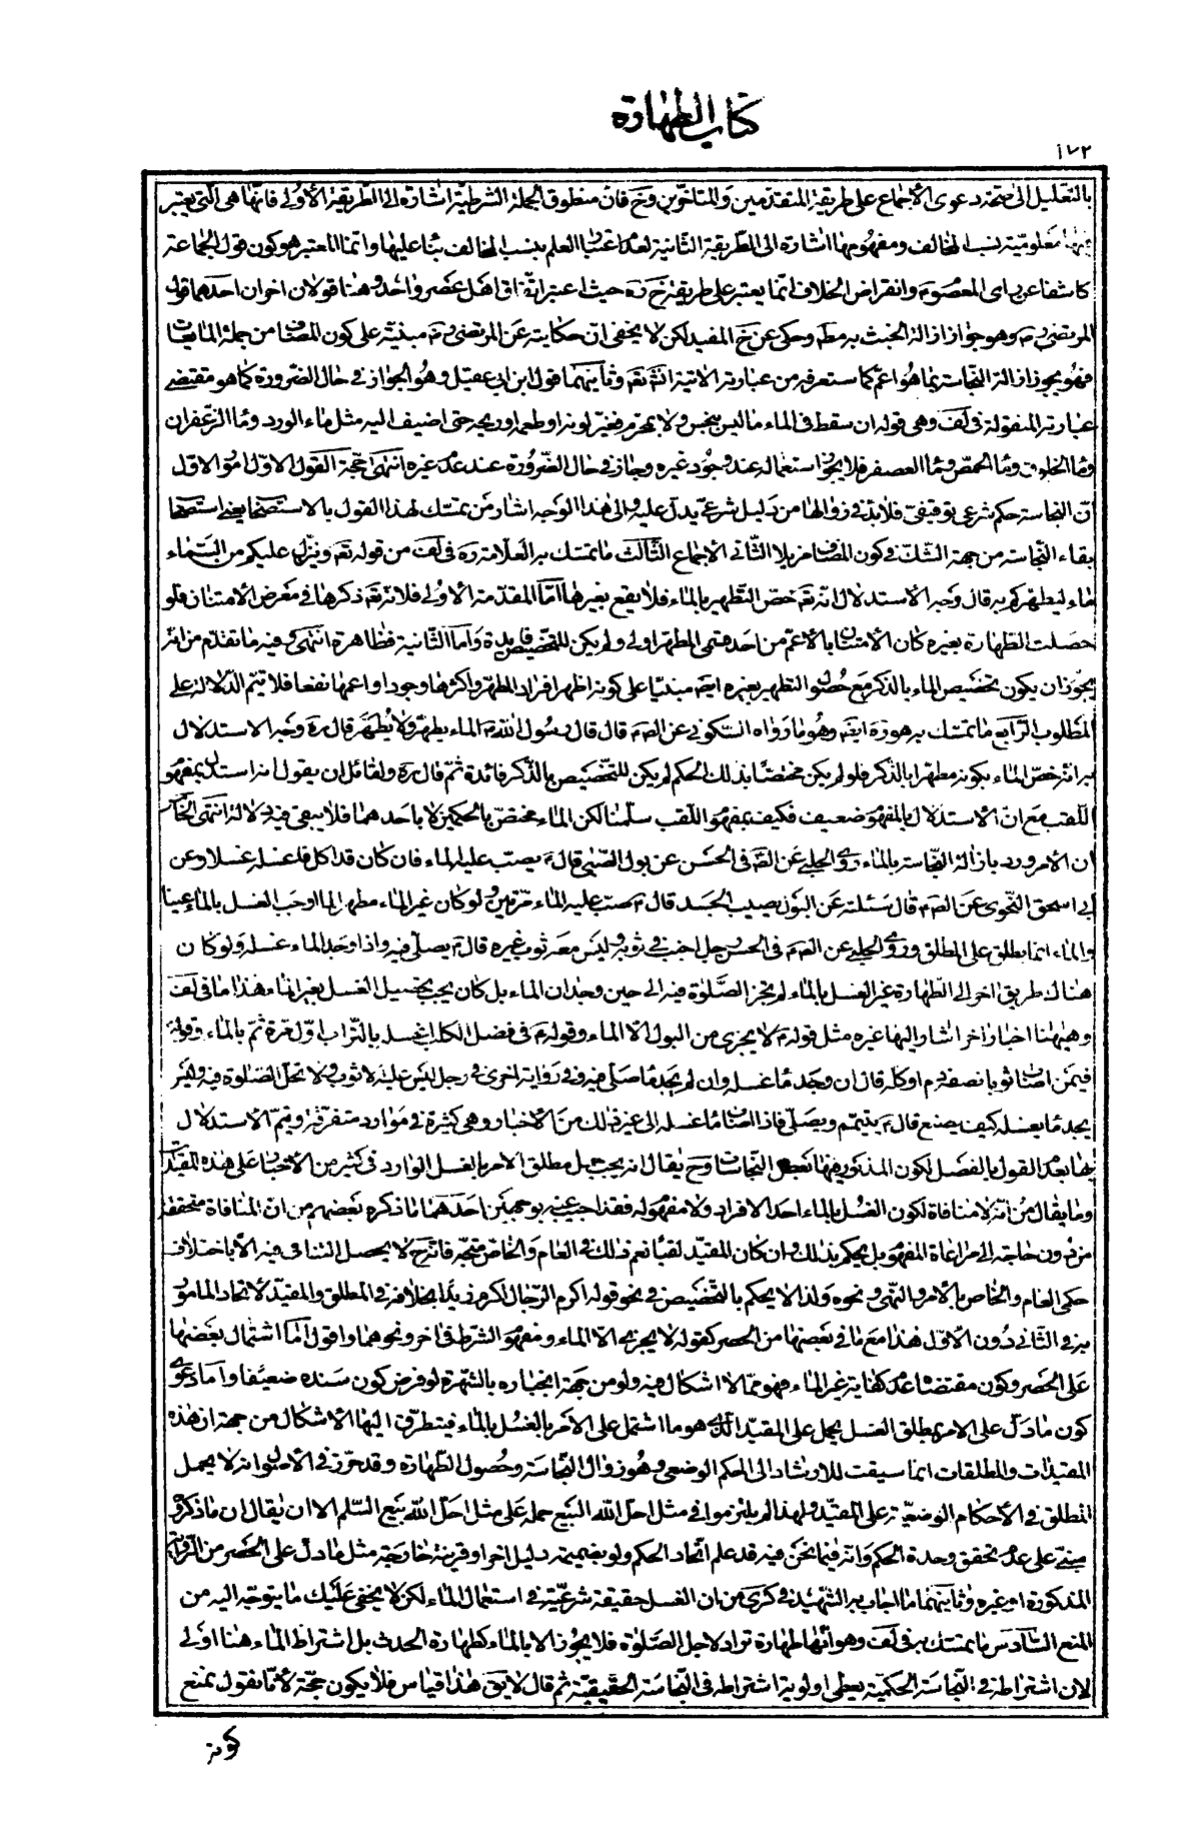 كتاب الطهارة
١٧٢
بالتعليل الى صحة دعوى الاجماع على طريقة المتقدمين والمتاخرين وح فان منطوق الجملة الشرطية اشارة الى الطريقة الاولى فانها هى التى يعتبر
فيها معلومية نسب المخالف ومفهومها اشارة الى الطريقة الثانية لعدم اعتبار العلم بنسب المخالف بناء عليها وانما المعتبر هو كون قول الجماعة
كاشفا عن راى المعصوم وانقراض الخلاف انما يعتبر على طريقة خ ره حيث اعتبر اتفاق اهل عصر واحد وهنا قولان اخران احدهما قول
المرتضى ره وهو جواز ازالة الخبث به مطم وحكى عن خ المفيد لكن لا يخفى ان حكايته عن المرتضى ره مبنية على كون المضاف من جملة المايعات
فهو يجوز ازالة النجاسة بما هو اعم كما ستعرفه من عبارته الاتية انشاء تعم وثانيهما قول ابن ابي عقيل وهو الجواز في حال الضرورة كما هو مقتضى
عبارته المنقولة في لف وهى قوله ان سقط فى الماء ما ليس بنجس ولا بمحرم فغير لونه او طعمه او ريحه حتى اضيف اليه مثل ماء الورد وماء الزعفران
وماء الخلوق وماء الحمص وماء العصفر فلا يجوز استعماله عند وجود غيره وجاز في حال الضرورة عند عدم غيره انتهى حجة القول الاول امور الاول
ان النجاسة حكم شرعى توقيفى فلا بد فى زوالها من دليل شرعى يدل عليه والى هذا الوجه اشار من تمسك لهذا القول بالاستصحاب يعنى استصحاب
بقاء النجاسة من جهة الشك فى كون المضاف مزيلا الثانى الاجماع الثالث ما تمسك به العلامة ره فى لف من قوله تعم وينزل عليكم من السماء
ماء ليطهركم به قال وجه الاستدلال انه تعم خص التطهير بالماء فلا يقع بغيرها اما المقدمة الاولى فلانه تعم ذكرها فى معرض الامتنان فلو
حصلت الطهارة بغيره كان الامتنان بالاعم من احد قسمى المطهر اولى ولم يكن للتخصيص فايدة واما الثانية فظاهرة انتهى وفيه ما تقدم من انه
يجوز ان يكون تخصيص الماء بالذكر مع حصول التطهير بغيره ايضم مبنيا على كونه اظهر افراد المطهر واكثرها وجودا واعمها نفعا فلا تتم الدلالة على
المطلوب الرابع ما تمسك به هو ره ايضم وهو ما رواه السكونى عن الصم قال قال رسول الله م الماء يطهر ولا يطهر قال ره وجه الاستدلال
به انه خص الماء بكونه مطهرا بالذكر فلو لم يكن مختصا بذلك الحكم لم يكن للتخصيص بالذكر فائدة ثم قال ره ولقائل ان يقول انه استدلال بمفهوم
اللقب مع ان الاستدلال بالمفهوم ضعيف فكيف بمفهوم اللقب سلمنا لكن الماء مختص بالحكمين لا باحدهما فلا يبقى فيه دلالة انتهى الخامس
ان الامر ورد بازالة النجاسة بالماء روى الحلبي عن الصم فى الحسن عن بول الصبى قال م يصب عليه الماء فان كان قد اكل فاغسله غسلا وعن
ابى اسحق النحوى عن الصم قال سئلته عن البول يصيب الجسد قال م صب عليه الماء مرتين ولو كان غير الماء مطهرا لما اوجب الغسل بالماء عينا
والماء انما يطلق على المطلق وروى الحلبي عن الصم فى الحسن رجل اجنب فى ثوبه وليس معه ثوب غيره قال م يصلى فيه واذا وجد الماء غسله ولو كان
هناك طريق اخر الى الطهارة غير الغسل بالماء لم يجز الصلوة فيه الى حين وجدان الماء بل كان يجب تحصيل الغسل بغير الماء هذا ما فى لف
وهيهنا اخبار اخر اشار اليها غيره مثل قوله م لا يجزى من البول الا الماء وقوله م فى فضل الكلب اغسله بالتراب اول مرة ثم بالماء وقوله
فيمن اصاب ثوبا نصفه دم او كله قال ان وجد ماء غسله وان لم يجد ماء صلى فيه وفى رواية اخرى فى رجل ليس عليه الا ثوب ولا تحل الصلوة فيه وليس
يجد ماء يغسله كيف يصنع قال م يتيمم ويصلى فاذا اصاب ماء غسله الى غير ذلك من الاخبار وهى كثيرة فى موارد متفرقة ويتم الاستدلال
بها بعدم القول بالفصل لكون المذكور فيها بعض النجاسات وح يقال انه يجب حمل مطلق الامر بالغسل الوارد فى كثير من الاخبار على هذه المقيدات
وما يقال من انه لا منافاة لكون الغسل بالماء احد الافراد ولا مفهوم له فقد اجيب عنه بوجهين احدهما ما ذكره بعضهم من ان المنافاة متحققة
من دون حاجة الى مراعاة المفهوم بل يحكم بذلك وان كان المقيد لقبا نعم ذلك فى العام والخاص متجه فانه ح لا يحصل التنافى فيه الا باختلاف
حكمى العام والخاص بالامر والنهى ونحوه ولذا لا يحكم بالتخصيص فى نحو قوله اكرم الرجال اكرم زيدا بخلافه فى المطلق والمقيد لاتحاد المامور
به فى الثانى دون الاول هذا مع ما فى بعضها من الحصر كقوله لا يجزى الا الماء ومفهوم الشرط فى اخر ونحوهما واقول اما اشتمال بعضها
على الحصر وكون مقتضاه عدم كفاية غير الماء فهو مما لا اشكال فيه ولو من جهة انجباره بالشهرة لو فرض كون سنده ضعيفا واما دعوى
كون ما دل على الامر بمطلق الغسل يحمل على المقيد الذى هو ما اشتمل على الامر بالغسل بالماء فيتطرق اليها الاشكال من جهة ان هذه
المقيدات والمطلقات انما سيقت للارشاد الى الحكم الوضعى وهو زوال النجاسة وحصول الطهارة وقد حرر فى الاصول انه لا يحمل
المطلق فى الاحكام الوضعية على المقيد ولهذا لم يلتزموا فى مثل احل الله البيع حمله على مثل احل الله بيع السلم الا ان يقال ان ما ذكروه
مبنى على عدم تحقق وحدة الحكم وانه فيما نحن فيه قد علم اتحاد الحكم ولو بضميمة دليل اخر او قرينة خارجية مثل ما دل على الحصر من الرواية
المذكورة او غيره وثانيهما ما اجاب به الشهيد فى كرى من ان الغسل حقيقة شرعية فى استعمال الماء لكن لا يخفى عليك ما يتوجه اليه من
المنع السادس ما تمسك به فى لف وهو انها طهارة تراد لاجل الصلوة فلا يجوز الا بالماء كطهارة الحدث بل اشتراط الماء هنا اولى
لان اشتراطه فى النجاسة الحكمية يعطى اولوية اشتراطه فى النجاسة الحقيقية ثم قال لا يقم هذا قياس فلا يكون حجة لانا نقول نمنع
كونه